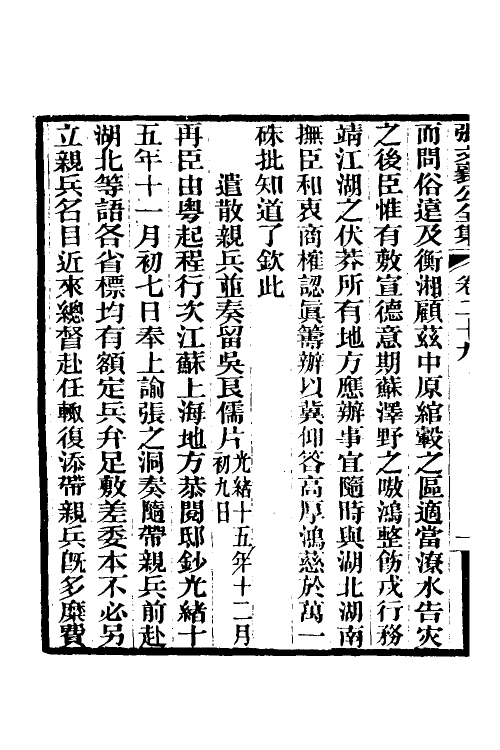 張文襄公全集 卷二十九 一
而問俗遠及衡湘顧茲中原綰轂之區適當潦水告灾
之後臣惟有敷宣德意期蘇澤野之嗷鴻整飭戎行務
靖江湖之伏莽所有地方應辦事宜隨時與湖北湖南
撫臣和衷商榷認眞籌辦以冀仰答高厚鴻慈於萬一
硃批知道了欽此
遣散親兵並奏留吳良儒片光緒十五年十二月初九日
再臣由粵起程行次江蘇上海地方恭閱邸鈔光緒十
五年十一月初七日奉上諭張之洞奏隨帶親兵前赴
湖北等語各省標均有額定兵弁足敷差委本不必另
立親兵名目近來總督赴任輙復添帶親兵旣多糜費